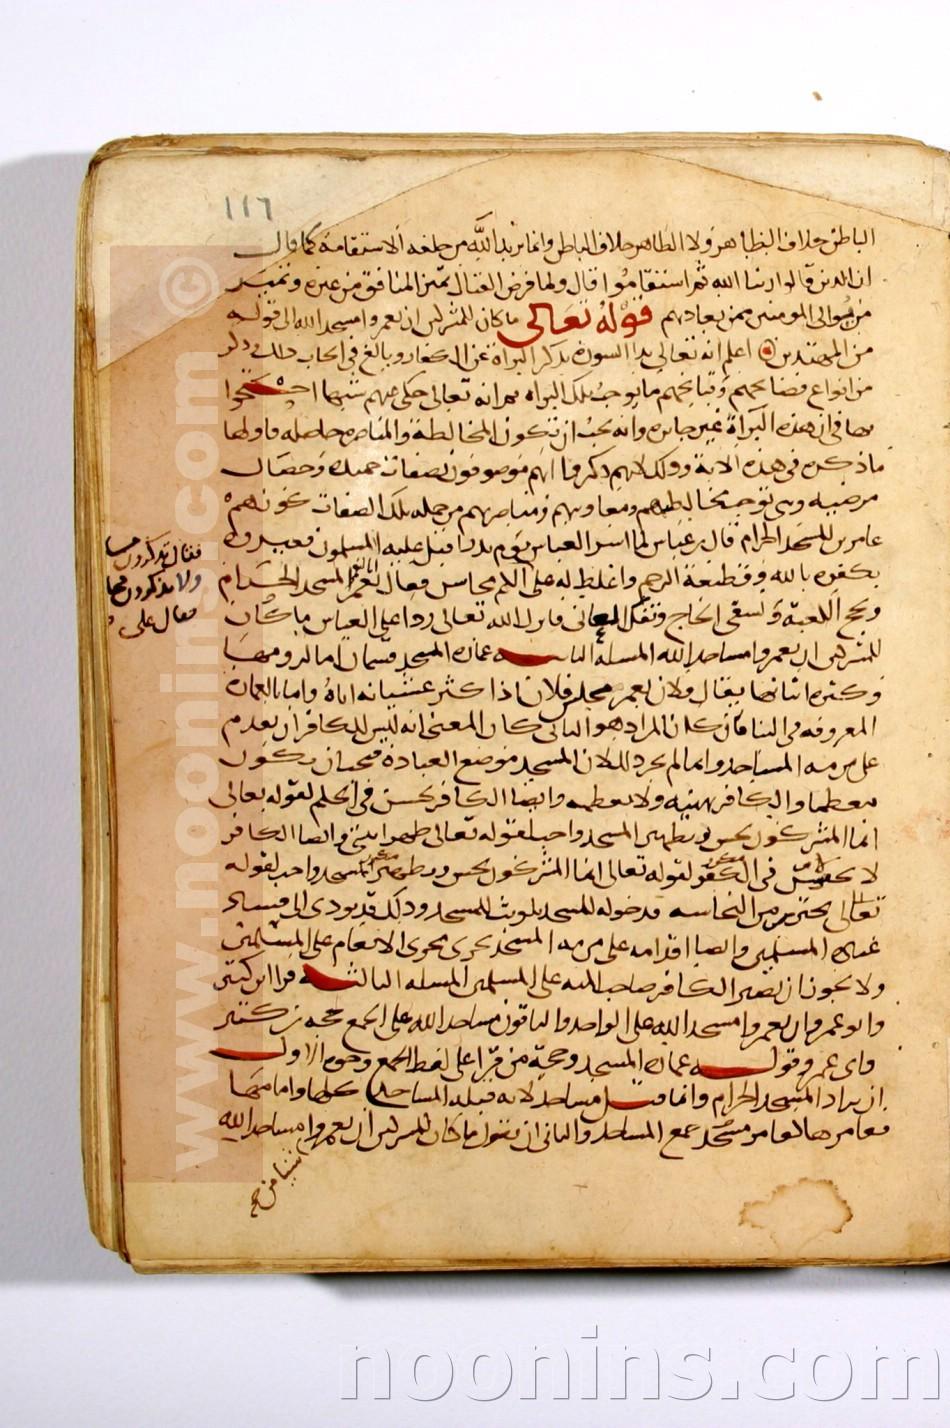 ١١٦
الباطن خلاف الظاهر ولا الظاهر خلاف الباطن وانما يريد الله من خلقه الاستقامة كما قال
ان الذين قالوا ربنا الله ثم استقاموا قال ولما فرض القتال تميز المنافق من غيره وتميز
من يوالى المومنين ممن يعاديهم قوله تعالى ما كان للمشركين ان يعمروا مسجد الله الى قوله
من المهتدين اعلم انه تعالى بدا السورة بذكر البراة عن الكفار وبالغ فى ايجاب ذلك وذكر
من انواع فضايحهم وقبايحهم ما يوجب تلك البراه ثم انه تعالى حكى عنهم شبها احتجوا
بها فى ان هذه البراة غير جايزه وانه يجب ان تكون المخالطة والمناصره حاصله فاولها
ما ذكره فى هذه الاية وذلك لانهم ذكروا انهم موصوفون بصفات حميدة وخصال
مرضيه وهى توجب مخالطتهم ومعاونتهم ومناصرتهم ومن جمله تلك الصفات كونهم
عامرين للمسجد الحرام قال بن عباس لما اسر العباس يوم بدر اقبل عليه المسلمون فعيروه
بكفره بالله وقطيعة الرحم واغلظ له على الكلم محاسن فقال لنعمر المسجد الحرام
ونحج الكعبة ونسقى الحاج ونفك العانى فانزل الله تعالى ردا على العباس ما كان
للمشركين ان يعمروا مساجد الله المسلة الثانيه عمارة المسجد قسمان اما لزومها
وكثره اتيانها يقال فلان يعمر مجلس فلان اذا كثر غشيانه اياه واما بالعمارة
المعروفه فى البنا فان كان المراد هو الثانى كان المعنى انه ليس للكافر ان يقدم
على مرمه المساجد وانما لم يجز ذلك لان المسجد موضع العبادة فيجب ان يكون
معظما والكافر يهينه ولا يعظمه وايضا الكافر نجس فى الحكم لقوله تعالى
انما المشركون نجس وتطهير المسجد واجب لقوله تعالى طهرا بيتى وايضا الكافر
تعالى يحترز من النجاسه فدخوله للمسجد تلويث للمسجد وذلك قد يودى الى فساد
عبادة المسلمين وايضا اقدامه على مرمه المسجد يجرى مجرى الانعام على المسلمين
ولا يجوز ان يصير الكافر صاحب المنه على المسلمين المسله الثالثه قرا ابن كثير
وابو عمرو ان يعمروا مسجد الله على الواحد والباقون مساجد الله على الجمع حجه بن كثير
وابى عمرو قوله عمارة المسجد وحجة من قرا على لفظ الجمع وجوه الاول
ان يراد المسجد الحرام وانما قيل مساجد لانه قبلة المساجد كلها وامامها
فعامرها كعامر جميع المساجد والثانى ان يقول ما كان للمشركين ان يعمروا مساجد الله
فقال تذكرون
ولا تذكرون
فقال على
شيئا من
© www.noonins.com
noonins.com